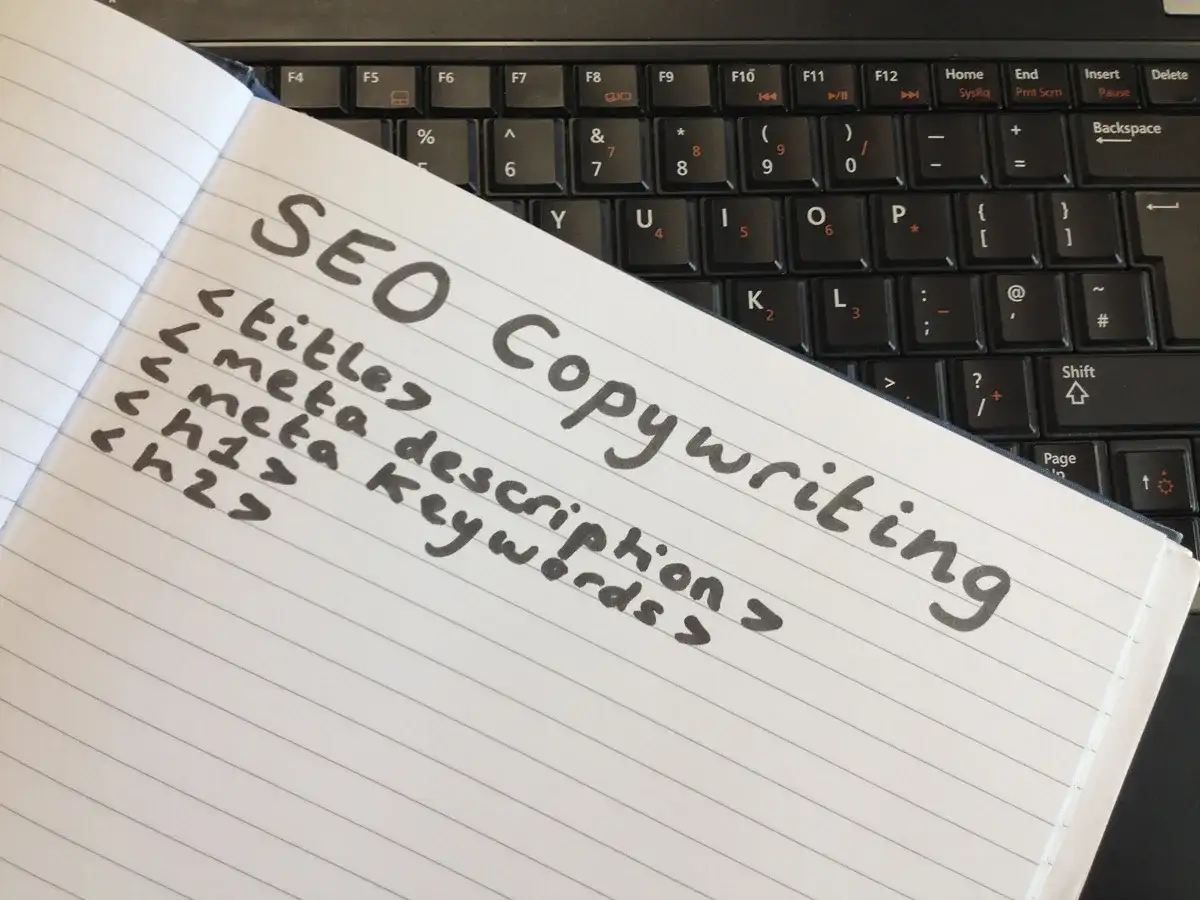 SEO Copywriting
<title>
<meta description>
<meta keywords>
<h1>
<h2>
F4 F5 F6 F7 F8 F9 F10 F11 F12 Home End Insert Delete
SysRq Prnt Scrn Pause
% ^ & * ( ) — + Backspace
6 7 7 8 8 9 9 0 / - =
Y U 4 I 5 O 6 P * { [ } ]
K 2 L 3 : ; — @ ' ~ #
> ? / + Shift
Page